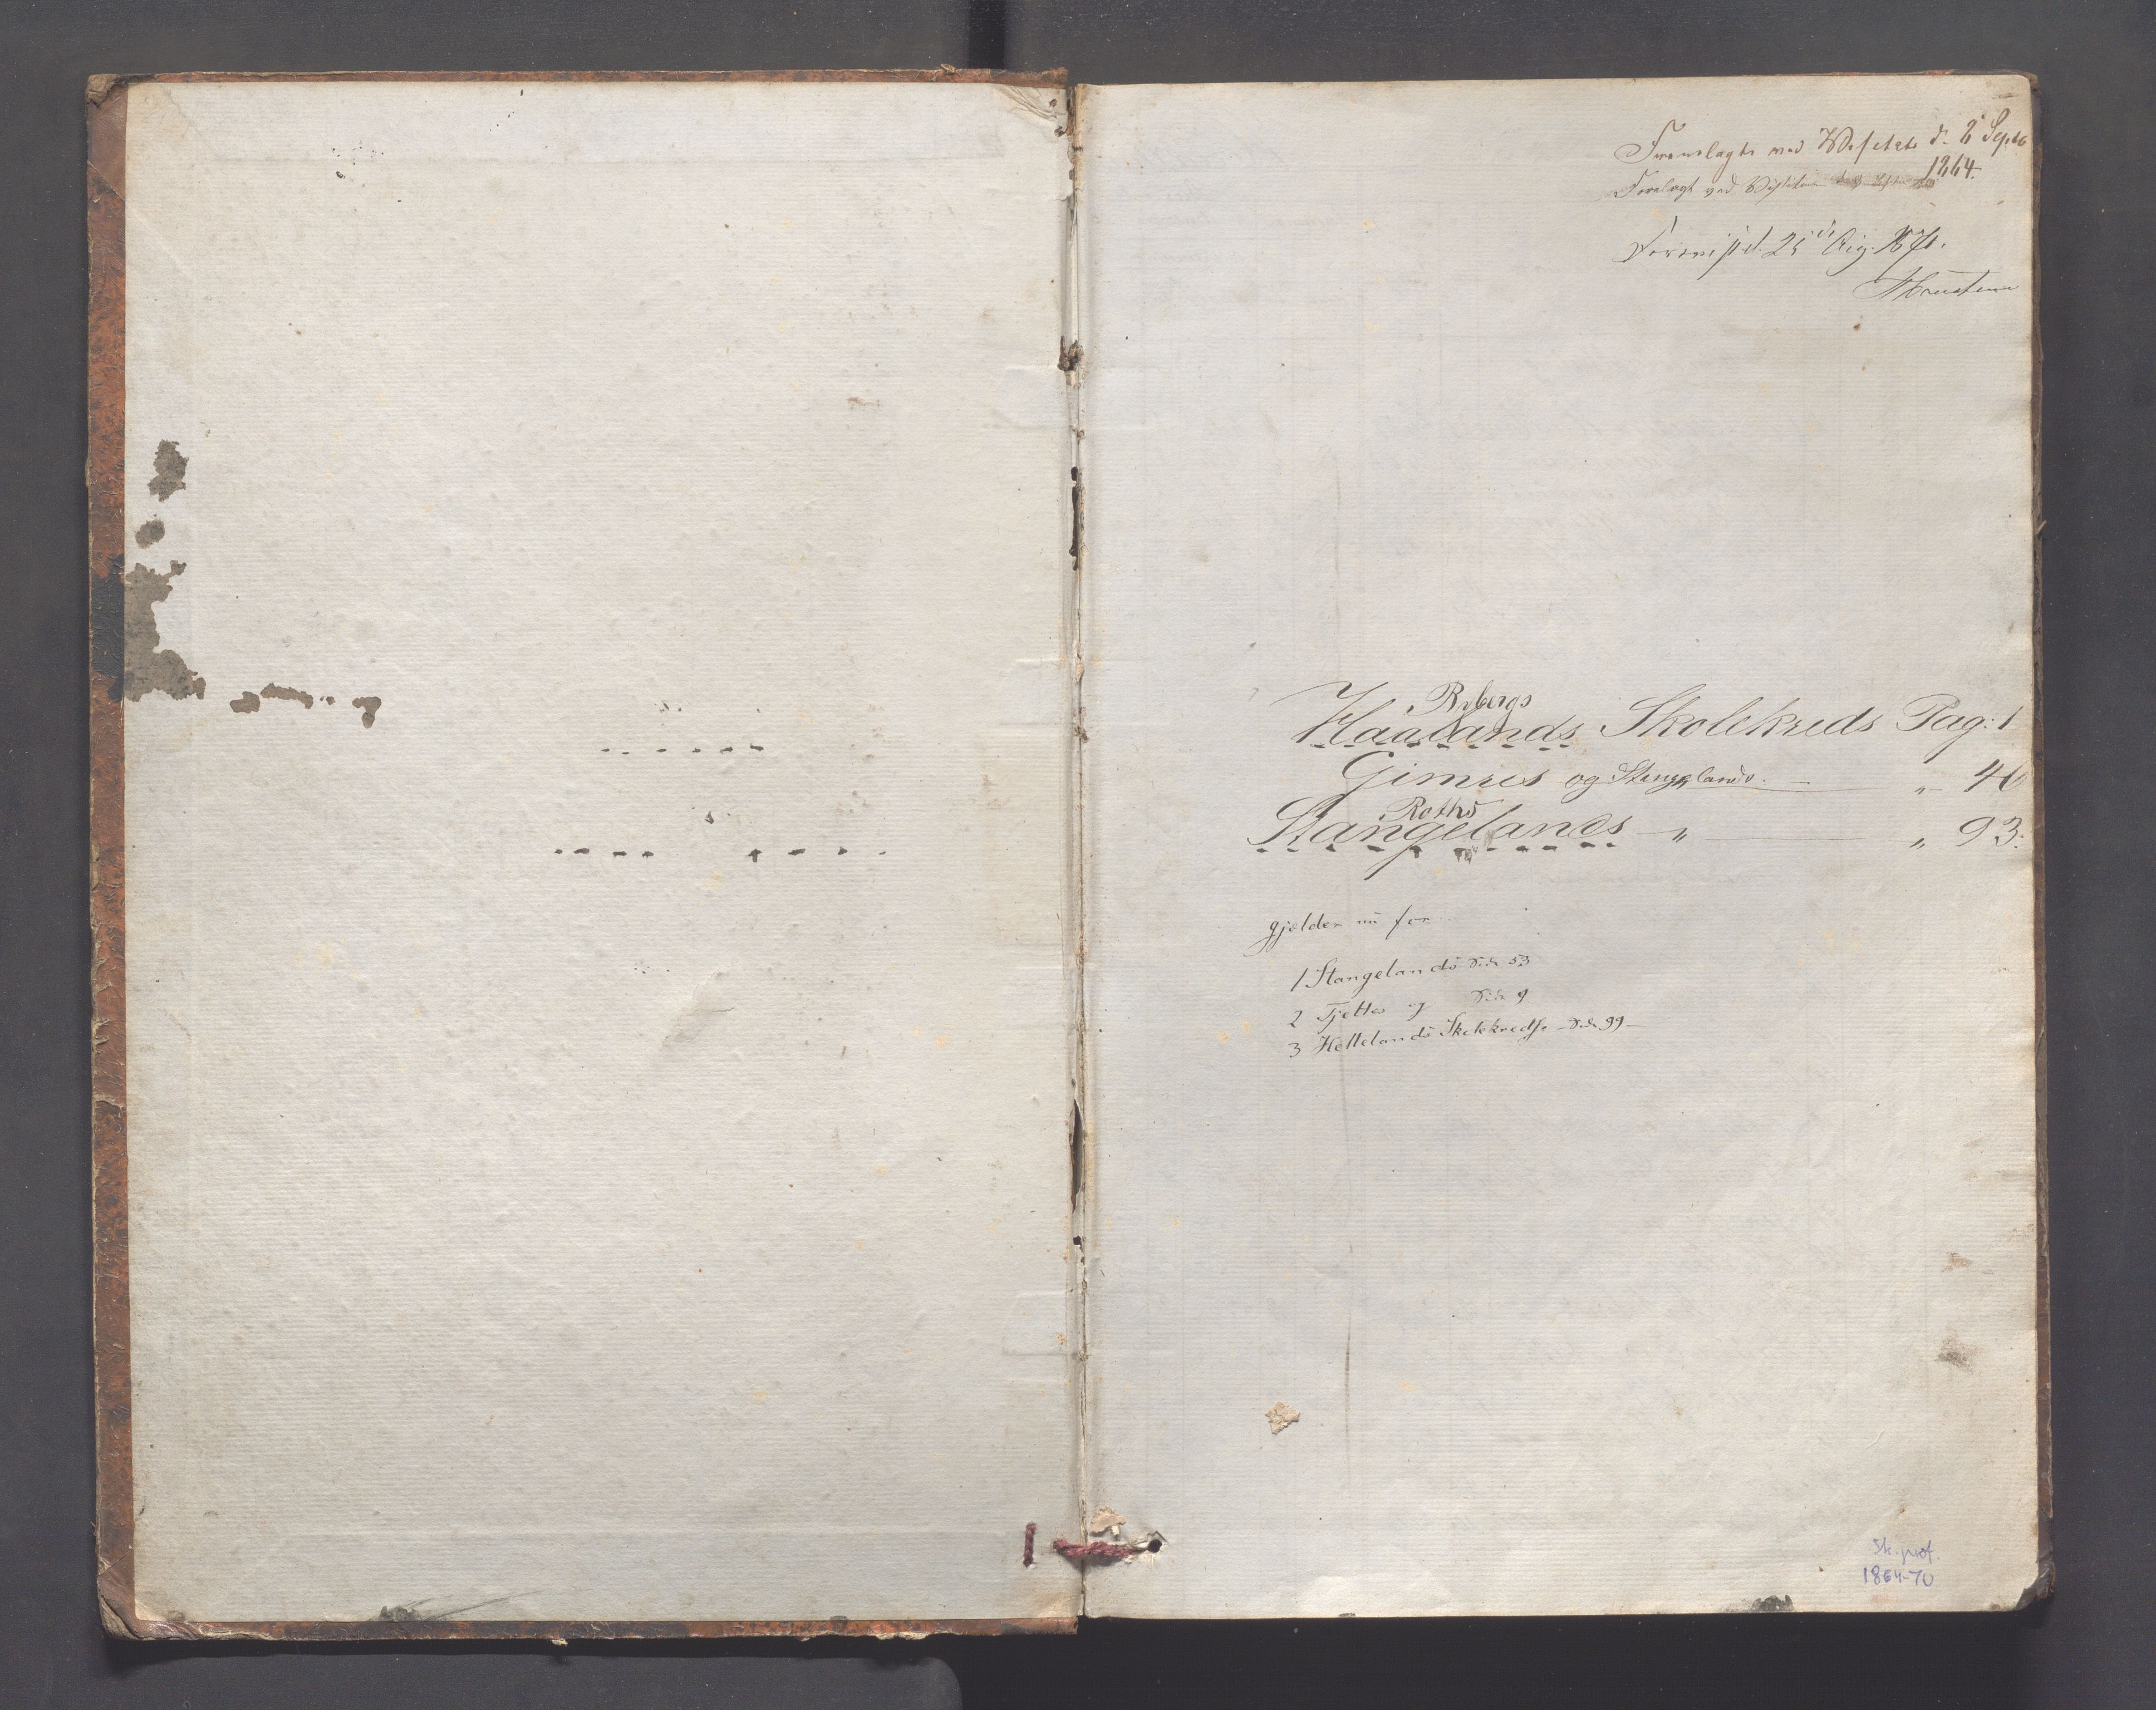 Fremlagt ved Visitats d. 2 Septb
1864.
Forelagt ved Visitats
Forevist d. 25 Aug. 1871.
Rybergs
Haalands Skolekreds Pag: 1
Gimres og Stangelands. „ 46
Roths
Stangelands „ „ 93.
gjelder nu for
1 Stangelands Side 53
2 Tjøtta og Side 9
3 Hellelands Skolekredse Side 99
Sk. prot.
1864-70